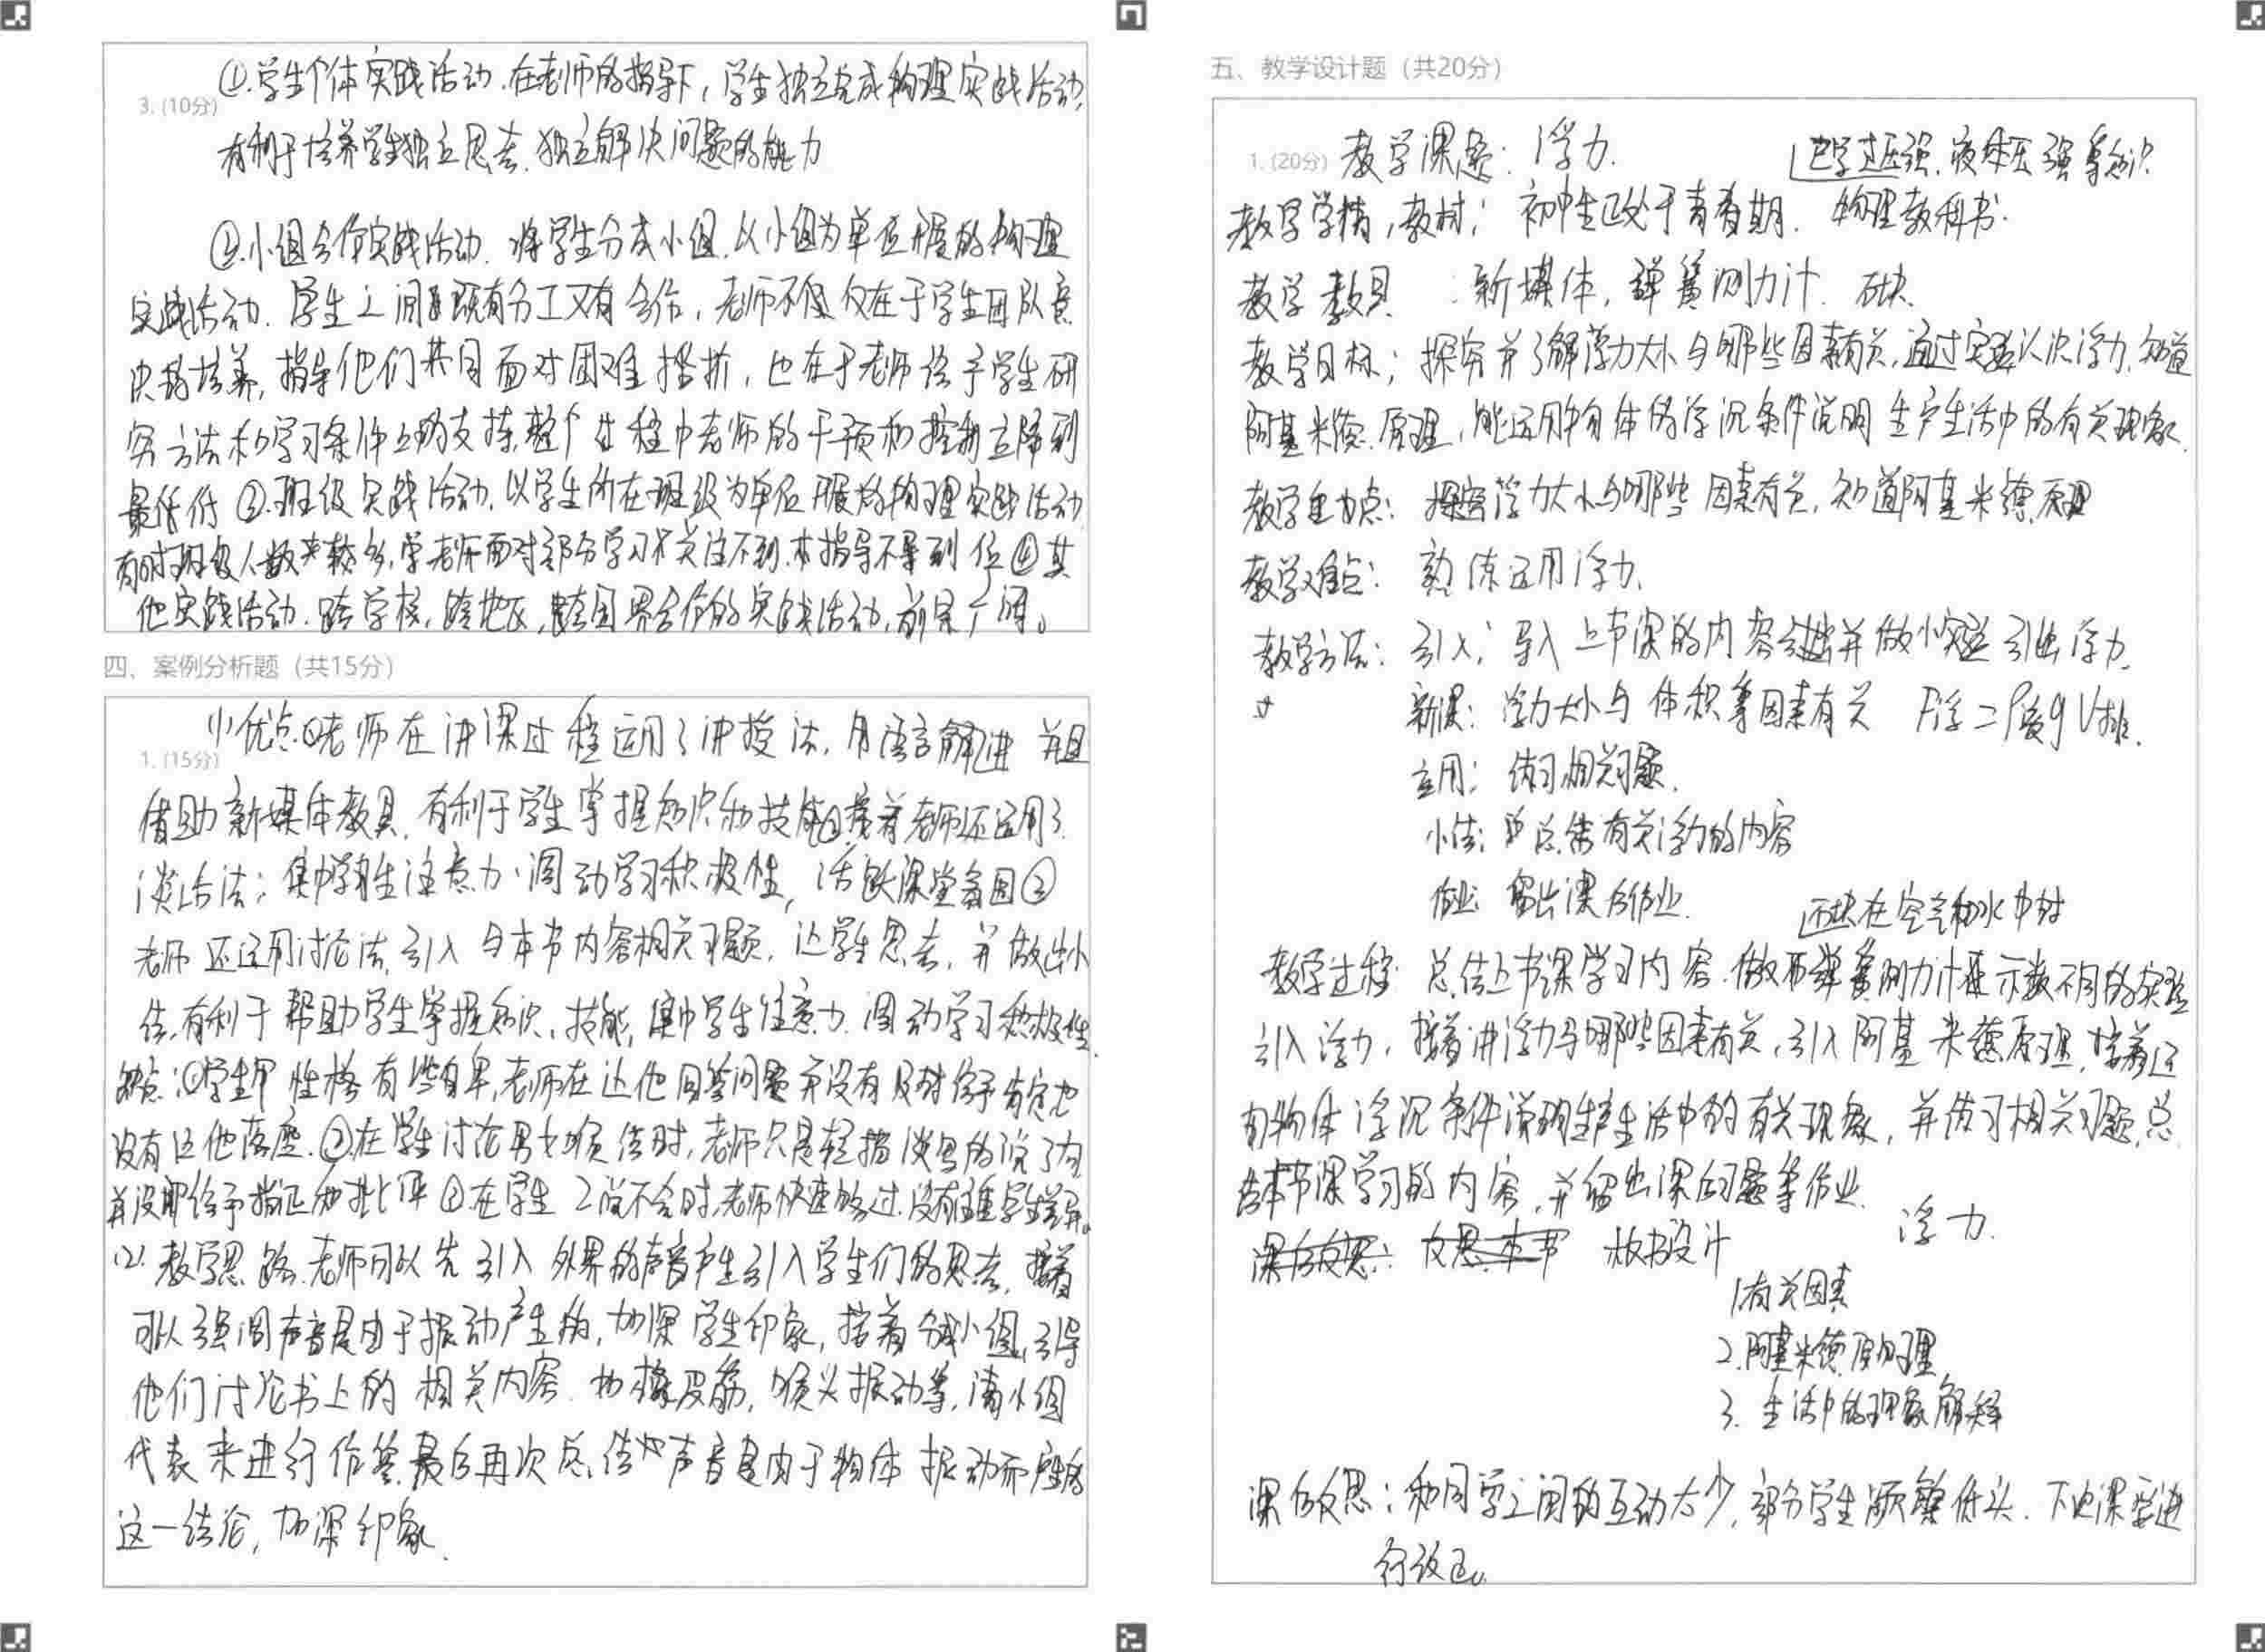 ①.学生个体实践活动.在老师的指导下,学生独立完成物理实践活动,
3. (10分)
有利于培养学生独立思考.独立解决问题的能力
②.小组合作实践活动.将学生分成小组.以小组为单位开展的物理
实践活动.学生之间既有分工又有合作,老师不仅仅在于学生团队意
识的培养,指导他们共同面对困难挫折,也在于老师给予学生研
究方法和学习条件上的支持.整个过程中老师的干预和控制应降到
最低 ③.班级实践活动.以学生所在班级为单位开展的物理实践活动
有时班级人数较多,老师面对部分学习关注不到.指导不到位④其
他实践活动.跨学校,跨地区,跨国界合作的实践活动,前景广阔。
四、案例分析题(共15分)
(1)优点①老师在讲课过程运用了讲授法,用语言解进并且
1. (15分)
借助新媒体教具.有利于学生掌握知识和技能②接着老师还运用了
谈话法;集中学生注意力.调动学习积极性,活跃课堂氛围③
老师还运用讨论法,引入与本节内容相关习题.让学生思考,并做出小
结.有利于帮助学生掌握知识、技能,集中学生注意力.调动学习积极性.
缺点:①学生甲性格有些自卑,老师在让他回答问题并没有及时给予肯定也
没有让他落座.②在学生讨论男女嗓音时,老师只是轻描淡写的说了句
并没有给予指正和批评③在学生乙说不会时,老师快速略过.没有尊重学生差异。
(2).教学思路.老师可以先引入外界的声音产生引入学生们的思考,接着
可以强调声音是由于振动产生的,加深学生印象,接着分成小组,引导
他们讨论书上的相关内容.如橡皮筋,喉头振动等,请小组
代表来进行作答.最后再次总结声音是由于物体振动而产生的
这一结论,加深印象.
五、教学设计题(共20分)
1. (20分) 教学课题:浮力.
已学过压强.液体压强等知识.
教学学情,教材:初中生正处于青春期.物理教科书.
教学教具:新媒体,弹簧测力计.石块.
教学目标;探究并了解浮力大小与哪些因素有关,通过实验认识浮力,知道
阿基米德.原理,能运用物体的浮沉条件说明生产生活中的有关现象.
教学重点:探究浮力大小与哪些因素有关,知道阿基米德原理
教学难点:熟练运用浮力.
教学方法:引入:导入上节课的内容并做小实验引出浮力.
新课:浮力大小与体积等因素有关 F浮=ρ液gV排.
应用:练习相关习题.
小结:总结有关浮力的内容
作业:留出课后作业.
石块在空气和水中时
教学过程 总结上节课学习内容.做石弹簧测力计示数不同的实验
引入浮力,接着讲浮力与哪些因素有关,引入阿基米德原理,接着运
用物体浮沉条件说明生产生活中的有关现象,并练习相关习题,总
结本节课学习的内容,并留出课后习题等作业.
课后反思:反思本节 板书设计
浮力.
1.有关因素
2.阿基米德原理
3.生活中的现象解释
课后反思:和同学之间的互动太少,部分学生频繁低头.下次课要进
行改正。